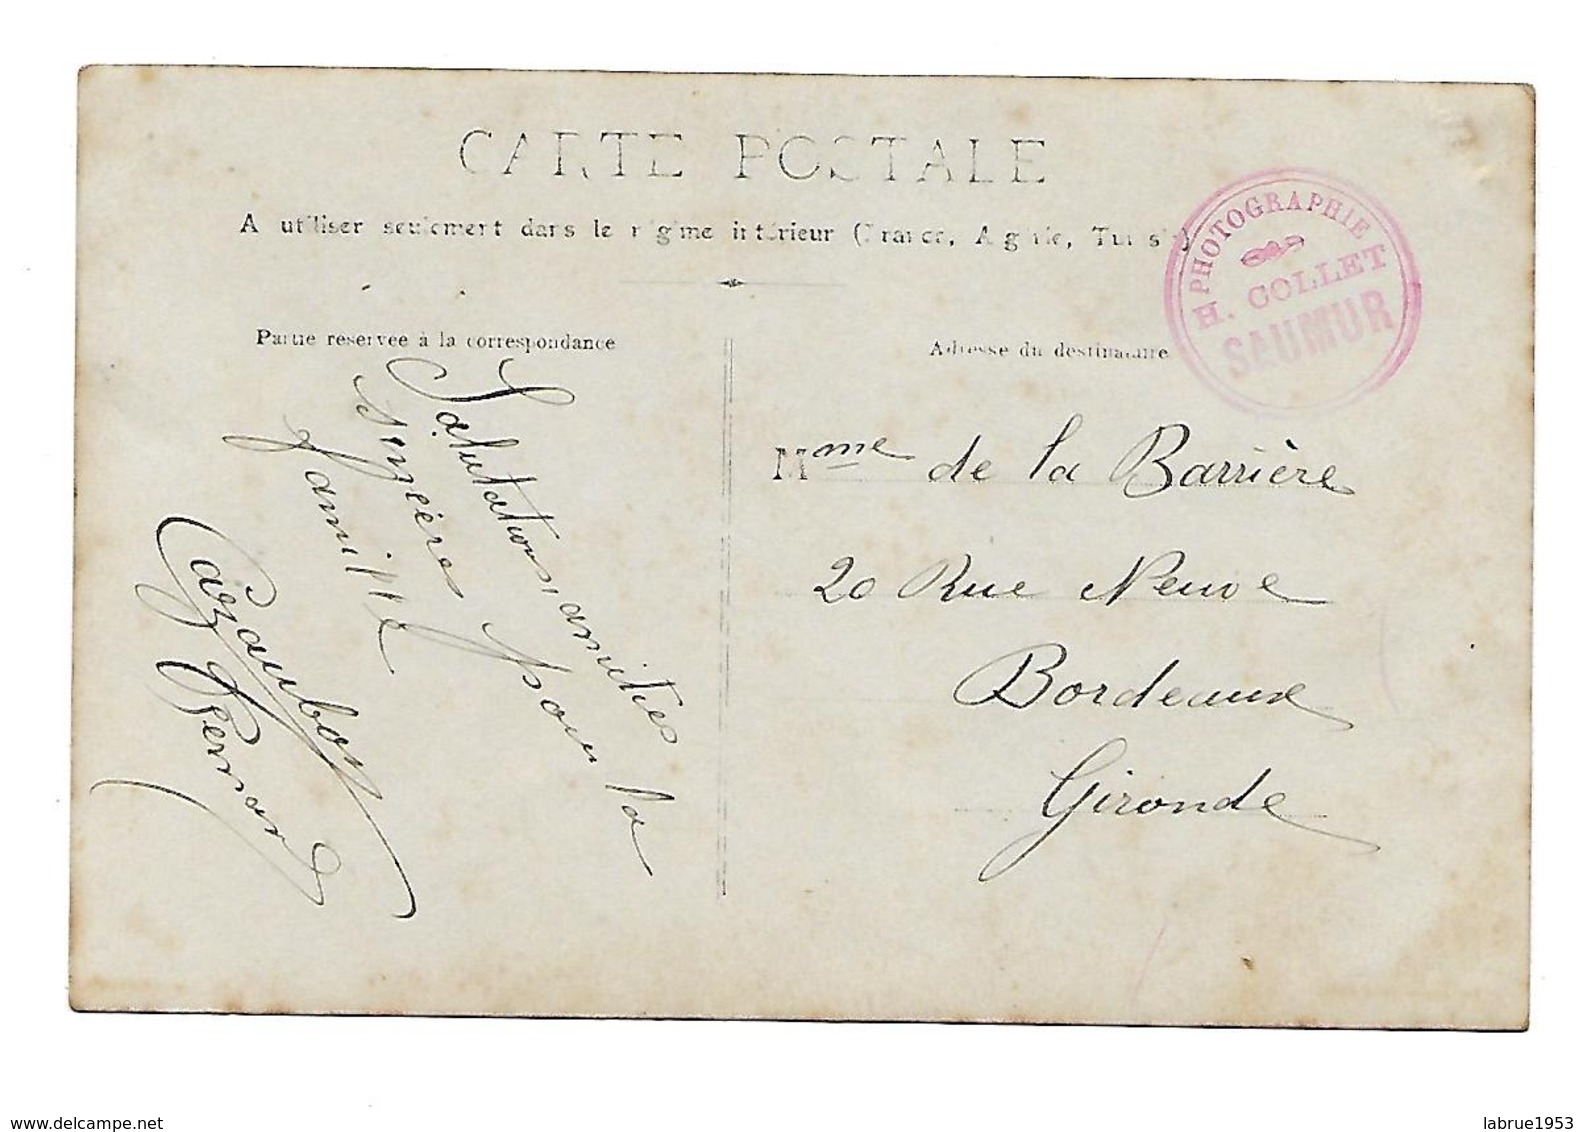 CARTE POSTALE
A utiliser seulement dans le régime intérieur (France, Algérie, Tunisie)
PHOTOGRAPHIE
H. COLLET
SAUMUR
Partie réservée à la correspondance
Salutations, amitiés
sinzères pour la
famille
Cazaubon
Bernard
Adresse du destinataire
Mme de la Barrière
20 Rue Neuve
Bordeaux
Gironde
www.delcampe.net
labrue1953